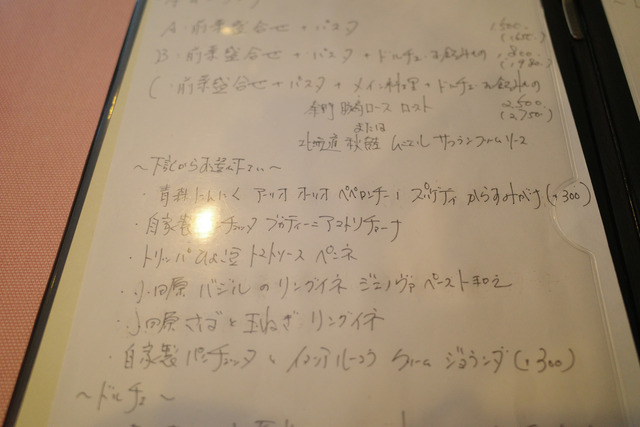 A・前菜盛合せ + パスタ 1,500. (1,650.)
B・前菜盛合せ + パスタ + ドルチェ お飲みもの 1,800. (1,980.)
C・前菜盛合せ + パスタ + メイン料理 + ドルチェ お飲みもの
豚肩ロース ロースト 2,500. (2,750.)
または
北海道 秋鮭 ムニエル サフランクリームソース
〜下記からお選び下さい〜
・青森にんにく アーリオ オーリオ ペペロンチーノ スパゲティ からすみがけ (+300)
・自家製パンチェッタ ブカティーニ アマトリチャーナ
・トリッパ ひよこ豆 トマトソース ペンネ
・小田原 バジルのリングイネ ジェノヴァペースト和え
・小田原 と玉ねぎ リングイネ
・自家製 パンチェッタと クリーム (+300)
〜ドルチェ〜